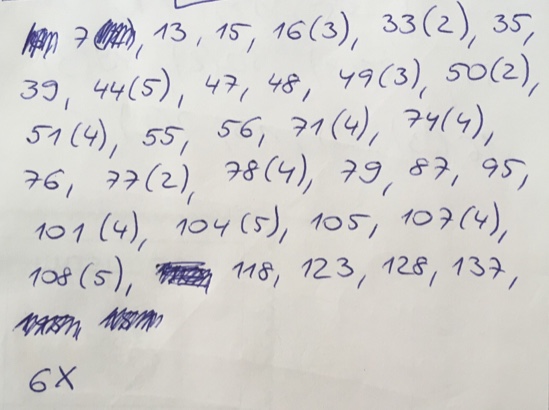 7, 13, 15, 16(3), 33(2), 35,
39, 44(5), 47, 48, 49(3), 50(2),
51(4), 55, 56, 71(4), 74(4),
76, 77(2), 78(4), 79, 87, 95,
101(4), 104(5), 105, 107(4),
108(5), 118, 123, 128, 137,
6x